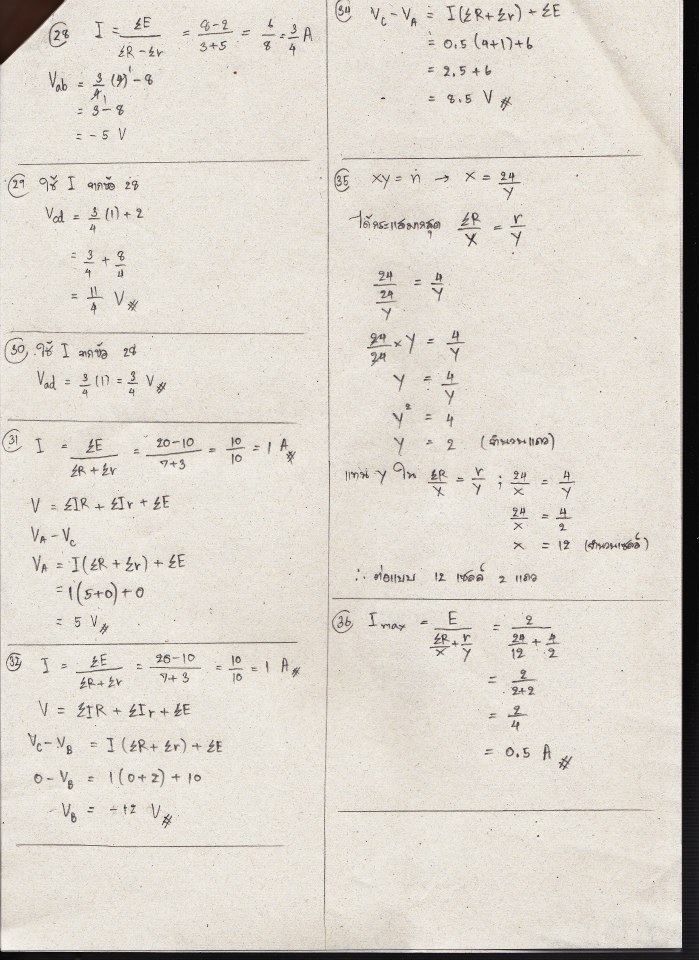 (28) I = ΣE / (ΣR - Σr) = (8-2) / (3+5) = 6/8 = 3/4 A
Vab = 3/4 (4) - 8
= 3 - 8
= - 5 V
(29) ใช้ I จากข้อ 28
Vcd = 3/4 (1) + 2
= 3/4 + 8/4
= 11/4 V #
(30) ใช้ I จากข้อ 28
Vad = 3/4 (1) = 3/4 V #
(31) I = ΣE / (ΣR + Σr) = (20-10) / (7+3) = 10/10 = 1 A #
V = ΣIR + ΣIr + ΣE
VA - VC
VA = I(ΣR + Σr) + ΣE
= 1(5+0) + 0
= 5 V #
(32) I = ΣE / (ΣR + Σr) = (20-10) / (7+3) = 10/10 = 1 A #
V = ΣIR + ΣIr + ΣE
VC - VB = I(ΣR + Σr) + ΣE
0 - VB = 1(0+2) + 10
-VB = -12 V #
(34) VC - VA = I(ΣR + Σr) + ΣE
= 0.5 (4+1) + 6
= 2.5 + 6
= 8.5 V #
(35) xy = n → x = 24/y
ได้กระแสมากสุด ΣR/x = r/y
24 / (24/y) = 4/y
24/24 × y = 4/y
y = 4/y
y² = 4
y = 2 (จำนวนแถว)
แทน y ใน ΣR/x = r/y ; 24/x = 4/y
24/x = 4/2
x = 12 (จำนวนเซลล์)
∴ ต่อแบบ 12 เซลล์ 2 แถว
(36) Imax = E / (ΣR/x + r/y) = 2 / (24/12 + 4/2)
= 2 / (2+2)
= 2/4
= 0.5 A #